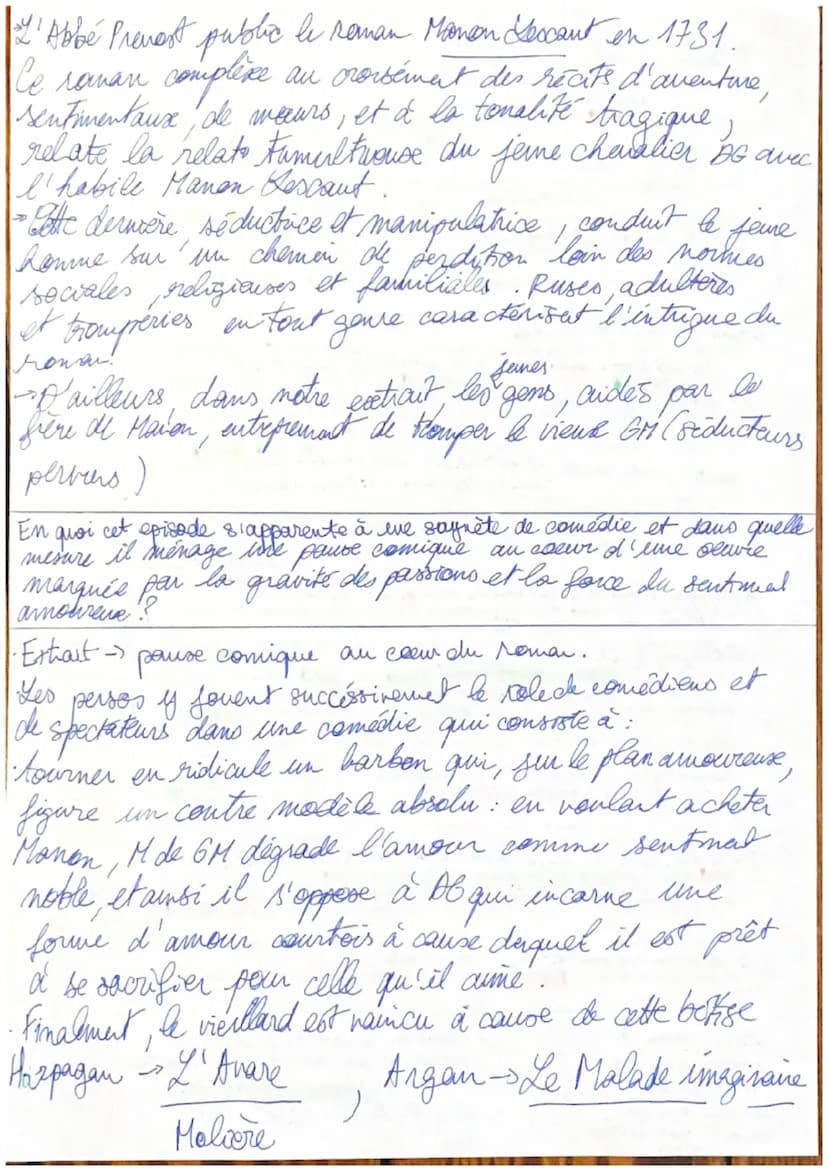 →L'Abbé Prevost publie le roman Manon Lescaut en 1731.
Ce roman complexe au croisément des récits d'aventure,
sentimentaux, de mœurs, et à la tonalité tragique,
relate la relato tumultruouse du jeune chevalier DG avec
l'habile Manon Lescaut.
→Cette dernière, séductrice et manipulatrice, conduit le jeune
homme sur un chemin de perdition loin des normes
sociales, religieuses et familiales. Ruses, adultères
et tromperies en tout genre caractérisent l'intrigue du
roman.
→D'ailleurs, dans notre extrait, les jeunes gens, aidés par le
frère de Manon, entreprennent de tromper le vieux GM (séducteurs
pervers)
En quoi cet episode s'apparente à une saynète de comédie et dans quelle
mesure il ménage une pause comique au coeur d'une oeuvre
marquée par la gravité des passions et la force du sentiment
amoureux?
·Extrait → pause comique au cœur du roman.
·Les persos y jouent succéssivement le role de comédiens et
de spectateurs dans une comédie qui consiste à :
·tourner en ridicule un barbon qui, sur le plan amoureuse,
figure un contre modèle absolu : en voulant acheter
Manon, M de GM dégrade l'amour comme sentiment
noble, et ainsi il s'oppose à DG qui incarne une
forme d'amour courtois à cause duquel il est prêt
à se sacrifier pour celle qu'il aime.
·Finalment, le vieillard est vaincu à cause de cette bêtise
Harpagan → L'Avare, Argan → Le Malade imaginaire
Molière